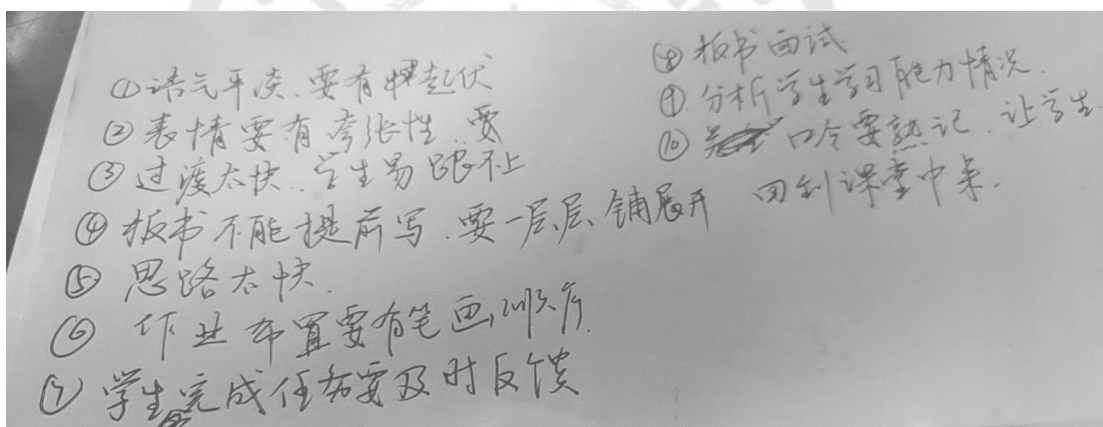 ①语气平淡.要有起伏
②表情要有夸张性.要
③过渡太快..学生易跟不上
④板书不能提前写.要一层层铺展开
⑤思路太快.
⑥作业布置要有笔画顺序.
⑦学生完成任务要及时反馈
⑧板书面试
⑨.分析学生学习能力情况.
⑩口令要熟记.让学生
回到课堂中来.